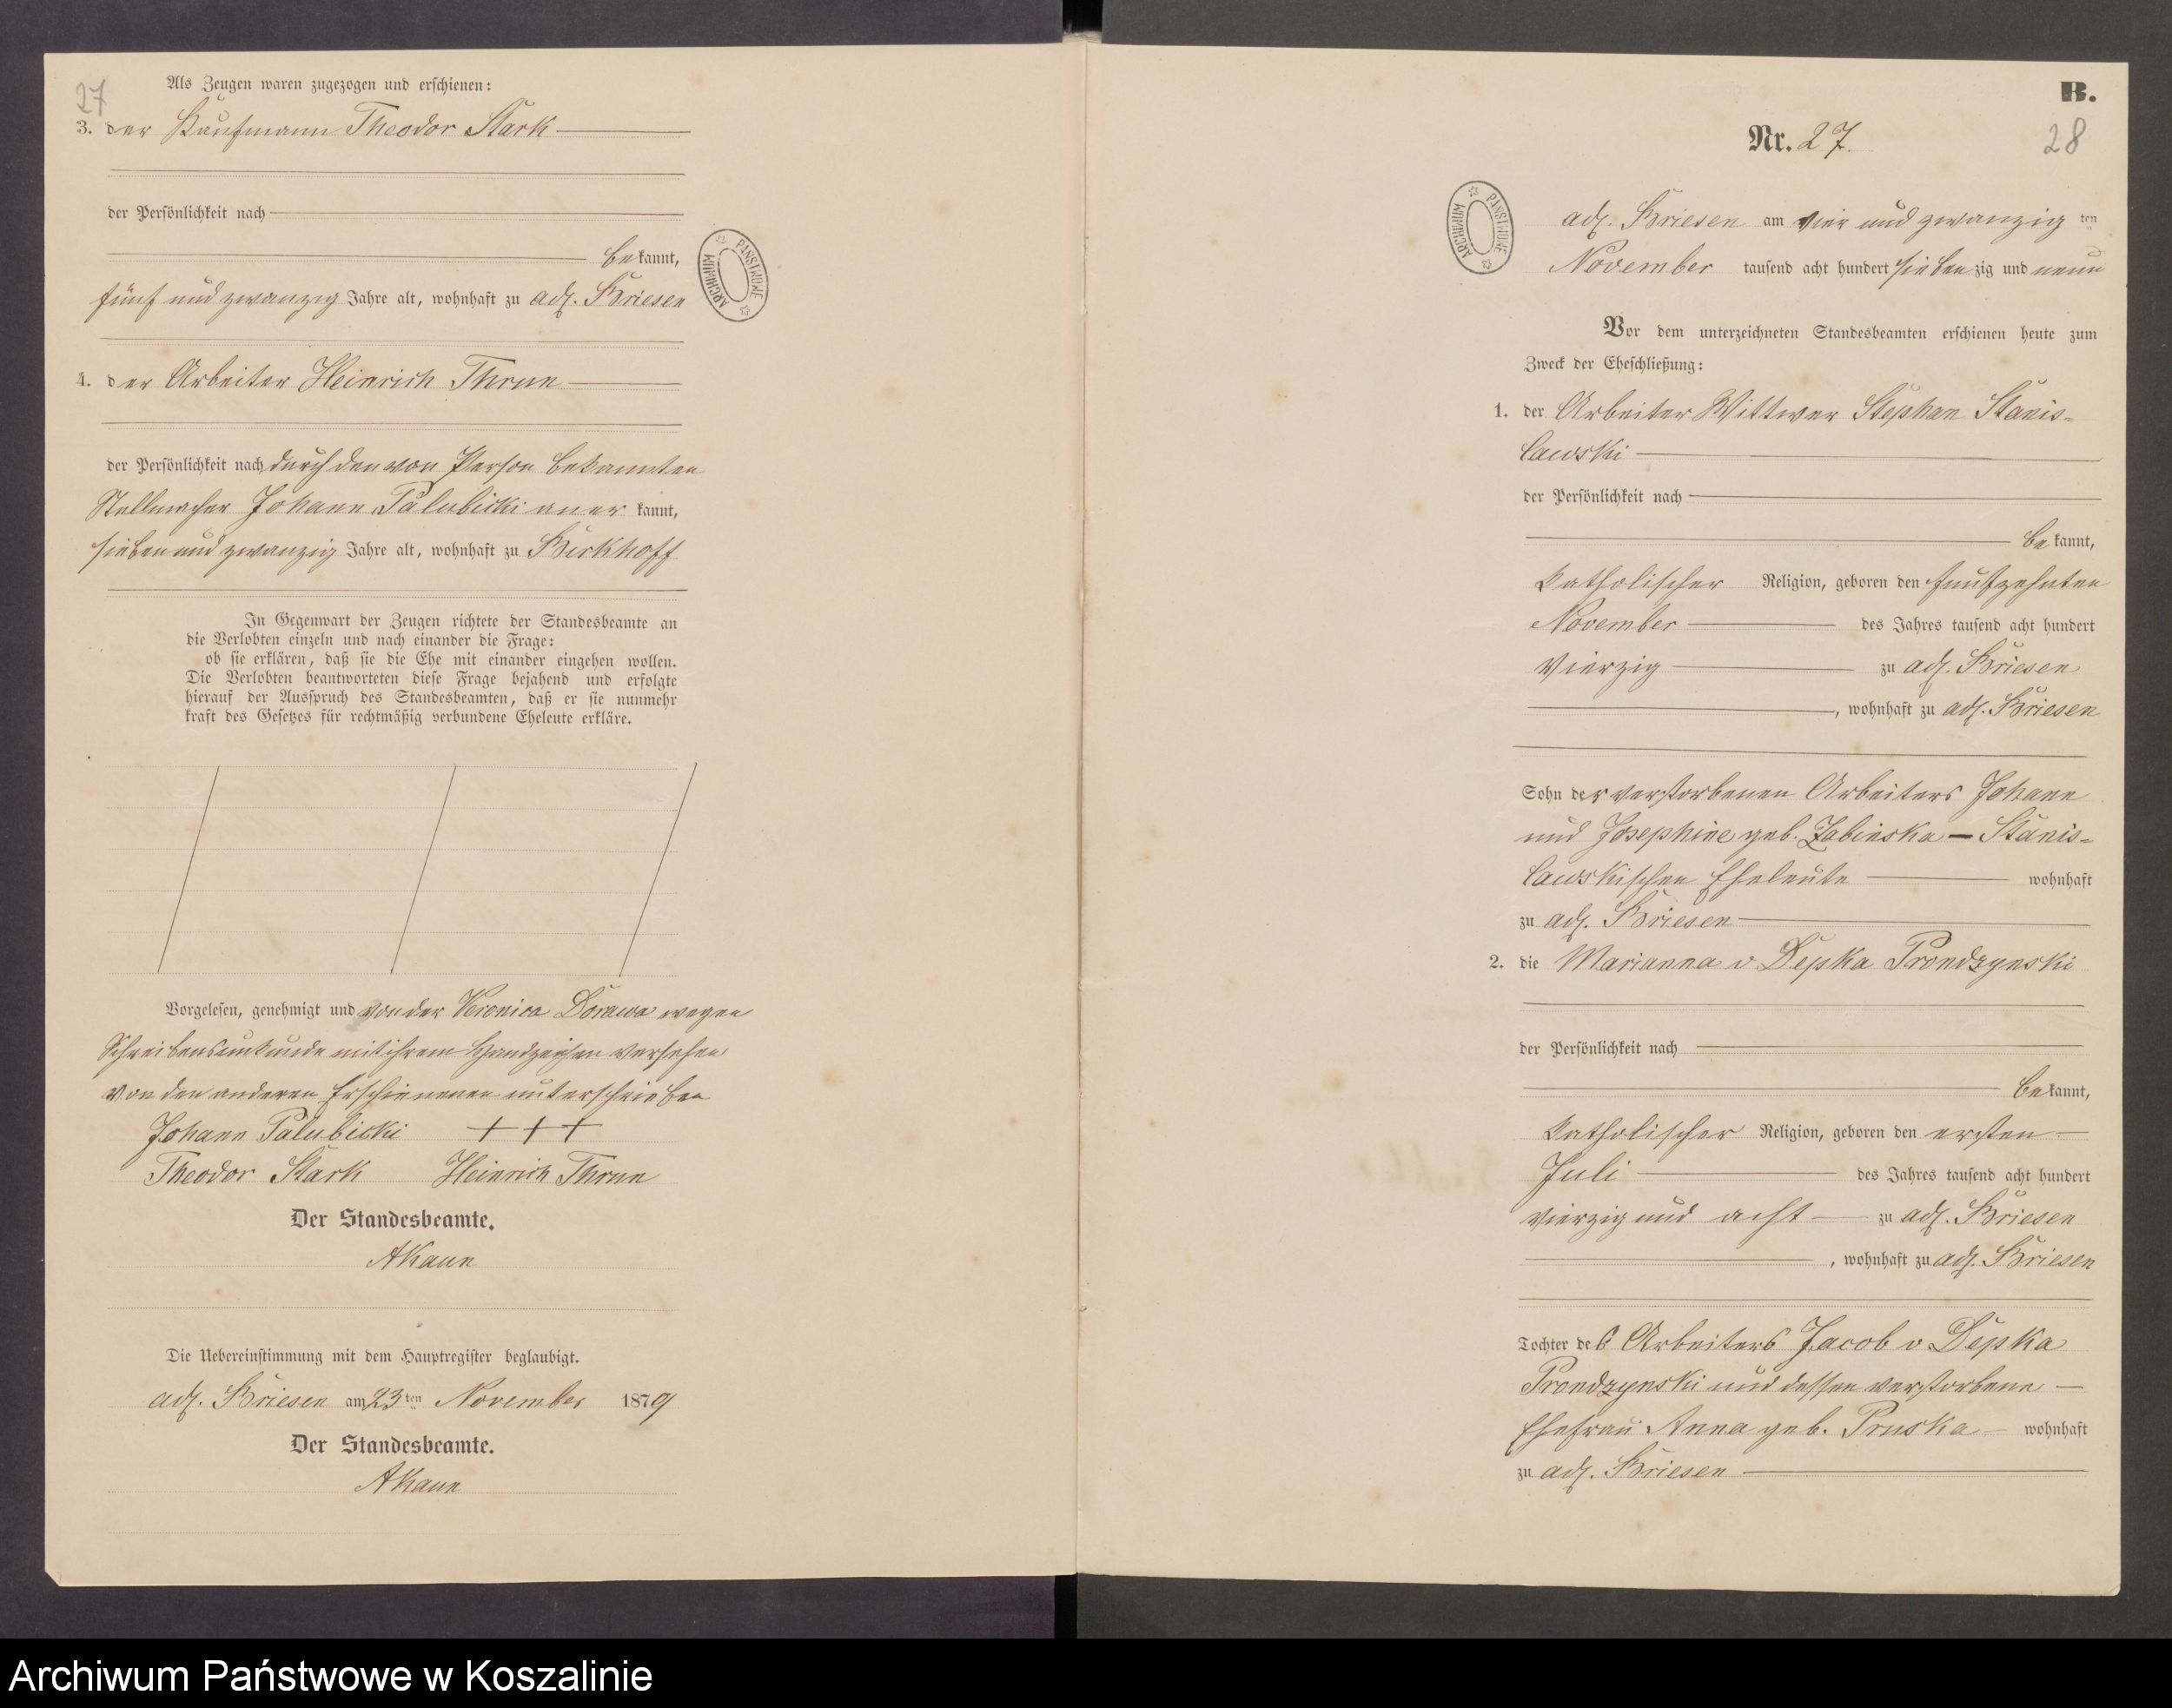 27
Als Zeugen waren zugezogen und erschienen:
3. der Kaufmann Theodor Stark
der Persönlichkeit nach
bekannt,
fünf und zwanzig Jahre alt, wohnhaft zu adl. Briesen
4. der Arbeiter Heinrich Thrun
der Persönlichkeit nach durch den von Person bekannten
Stellmacher Johann Palubicki anerkannt,
sieben und zwanzig Jahre alt, wohnhaft zu Birkhoff
In Gegenwart der Zeugen richtete der Standesbeamte an
die Verlobten einzeln und nach einander die Frage:
ob sie erklären, daß sie die Ehe mit einander eingehen wollen.
Die Verlobten beantworteten diese Frage bejahend und erfolgte
hierauf der Ausspruch des Standesbeamten, daß er sie nunmehr
kraft des Gesetzes für rechtmäßig verbundene Eheleute erkläre.
Vorgelesen, genehmigt und von der Veronica Dorawa wegen
Schreibensunkunde mit ihrem Handzeichen versehen
von den anderen Erschienenen unterschrieben
Johann Palubicki +++
Theodor Stark Heinrich Thrun
Der Standesbeamte.
AKaun
Die Uebereinstimmung mit dem Hauptregister beglaubigt.
adl. Briesen am 23ten November 1879
Der Standesbeamte.
AKaun
ARCHIWUM PAŃSTWOWE
B.
Nr. 27.
28
ARCHIWUM PAŃSTWOWE
adl. Briesen am vier und zwanzig ten
November tausend acht hundert siebenzig und neun
Vor dem unterzeichneten Standesbeamten erschienen heute zum
Zweck der Eheschließung:
1. der Arbeiter Wittwer Stephan Stanis-
lawski
der Persönlichkeit nach
bekannt,
katholischer Religion, geboren den funfzehnten
November des Jahres tausend acht hundert
vierzig zu adl. Briesen
, wohnhaft zu adl. Briesen
Sohn der verstorbenen Arbeiters Johann
und Josephine geb. Zabinska – Stanis-
lawskischen Eheleute wohnhaft
zu adl. Briesen
2. die Marianna v Depka Prondzynski
der Persönlichkeit nach
bekannt,
katholischer Religion, geboren den ersten
Juli des Jahres tausend acht hundert
vierzig und acht zu adl. Briesen
, wohnhaft zu adl. Briesen
Tochter des Arbeiters Jacob v Depka
Prondzynski und dessen verstorbene
Ehefrau Anna geb. Pruska wohnhaft
zu adl. Briesen
Archiwum Państwowe w Koszalinie